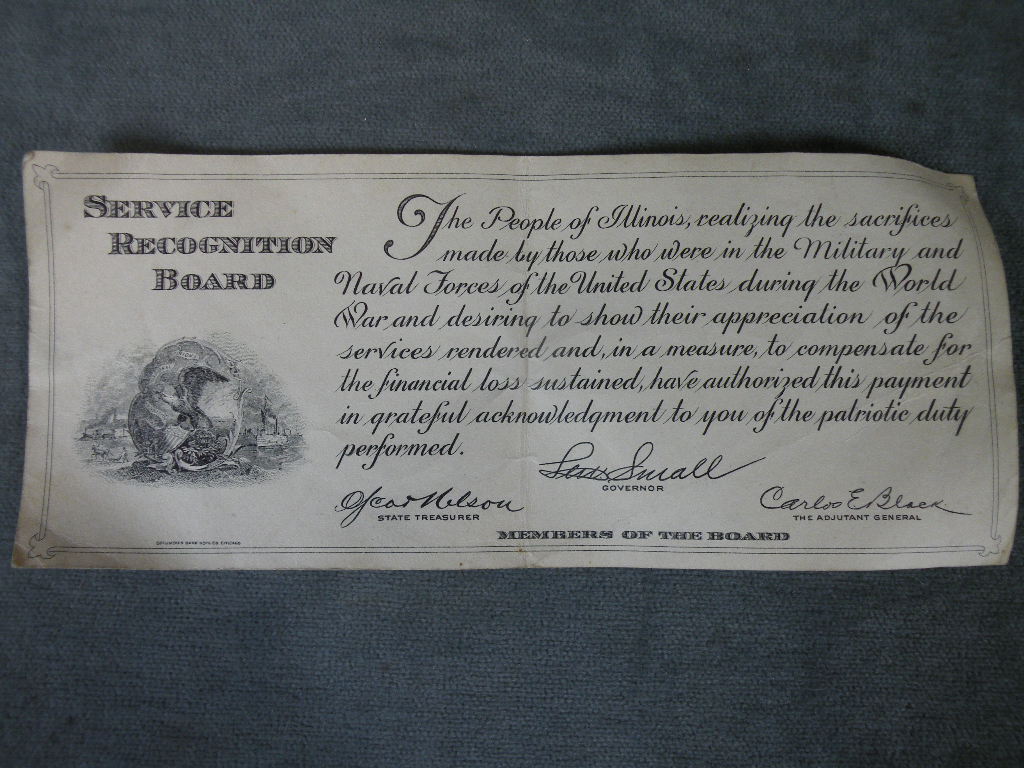 SERVICE
RECOGNITION
BOARD
The People of Illinois, realizing the sacrifices
made by those who were in the Military and
Naval Forces of the United States during the World
War and desiring to show their appreciation of the
services rendered and, in a measure, to compensate for
the financial loss sustained, have authorized this payment
in grateful acknowledgment to you of the patriotic duty
performed.
Len Small
GOVERNOR
Oscar Nelson
STATE TREASURER
Carlos E. Black
THE ADJUTANT GENERAL
MEMBERS OF THE BOARD